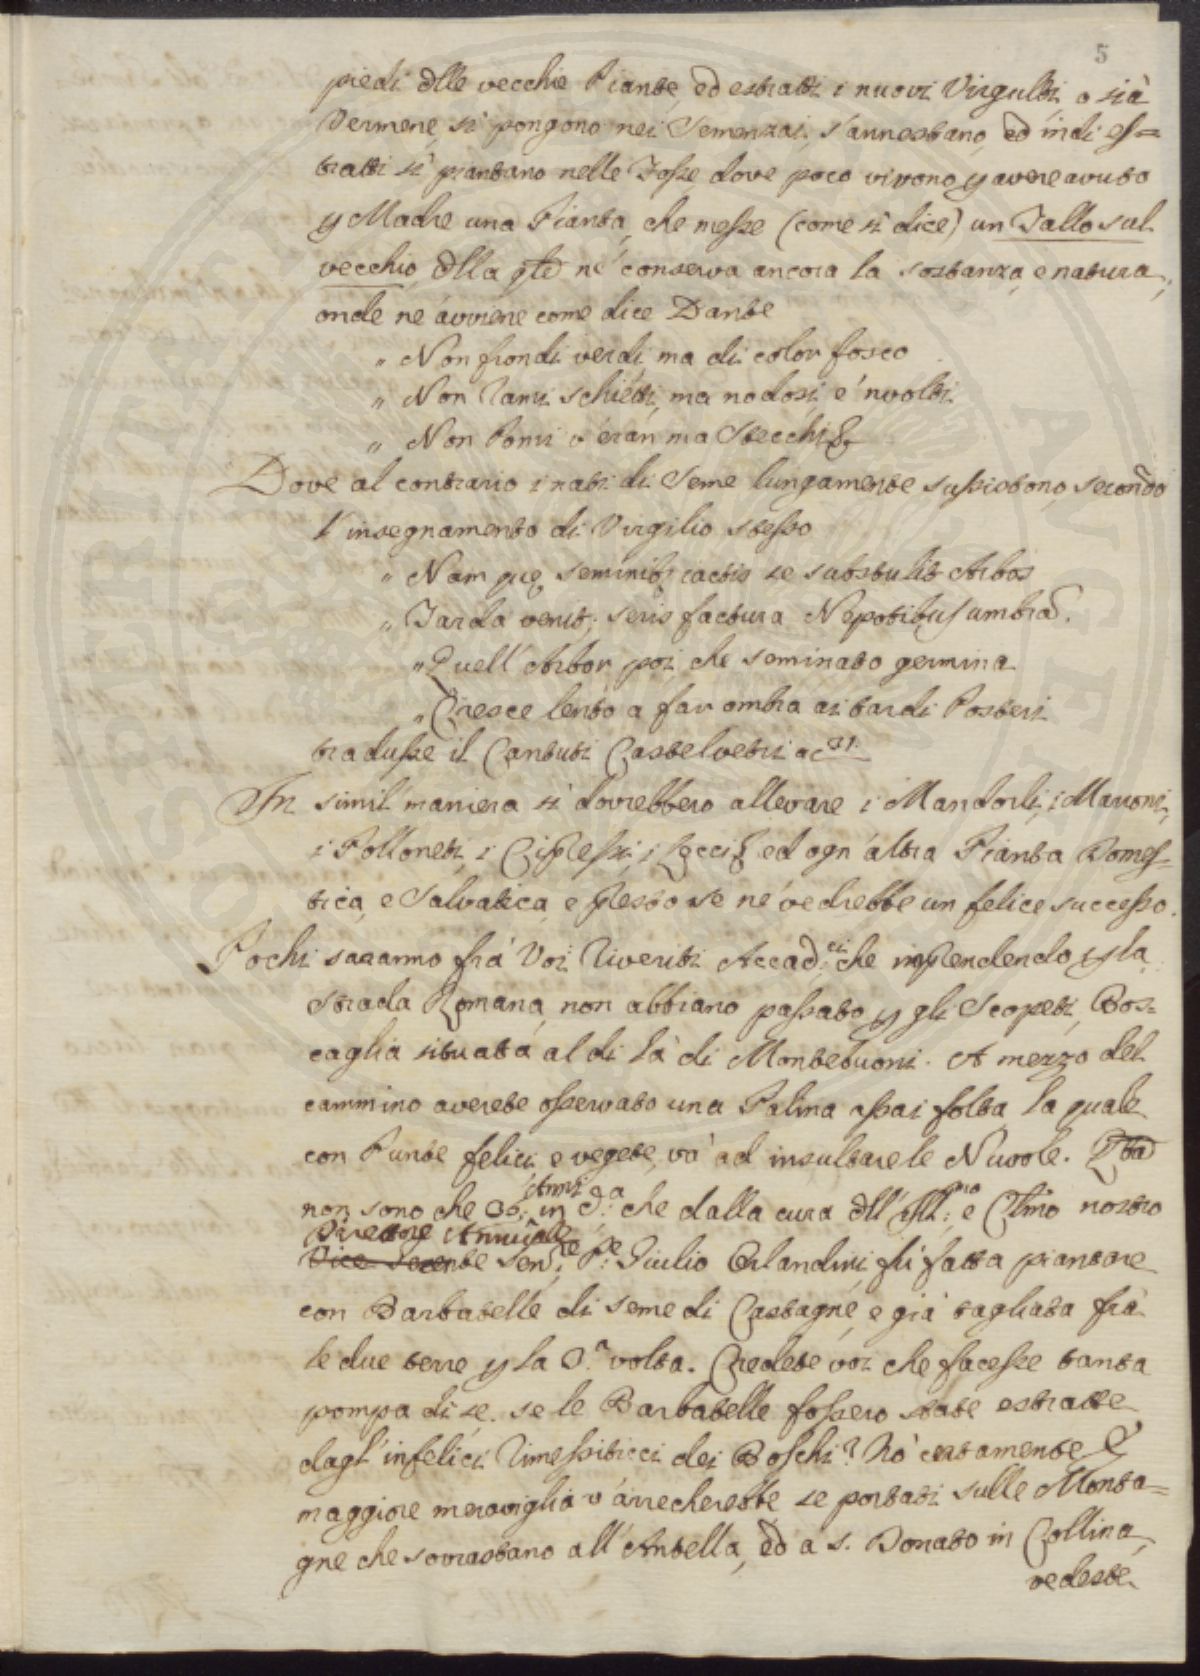 5
piedi dlle vecchie Piante, ed estratti i nuovi Virgulti, o sià
Vermene, si pongono nei Semenzai, s'annestano, ed indi es=
tratti si piantano nelle Fosse, dove poco vivono, p avere avuto
p Madre una Pianta, che messe (come si dice) un Tallo sul
vecchio, dlla qle né conserva ancora la sostanza, e natura,
onde ne avviene come dice Dante
" Non frondi verdi, ma di color fosco
" Non Rami schietti, ma nodosi, e 'nvolti
" Non Pomi v'eran, ma Stecchi &
Dove al contrario i nati di Seme lungamente sussistono, secondo
l'insegnamento di Virgilio stesso
" Nam que seminib; iactis se substulit Arbos
" Tarda venit, seris factura Nepotibus umbra.
" Quell' Arbor poi, che seminato germina
" Cresce lento a far ombra ai tardi Posteri
tradusse il Cantuti Castelvetri ac 31.
In simil maniera si dovrebbero allevare i Mandorli, i Marroni,
i Polloneti, i Cipressi, i Lecci & ed ogn' altra Pianta Domes=
tica, e Salvatica, e presto se ne vedrebbe un felice successo.
Pochi saranno frà Voi Riveriti Accad:ci che imprendendo p la
Strada Romana, non abbiano passato p gli Scopeti, Bos=
caglia situata al di là di Montebuoni. A mezzo del
cammino averete osservato una Palina assai folta, la quale
con Piante felici, e vegete, và ad insultare le Nuvole.
non sono che 36: Anni in ca: che dalla cura dll' Ill:mo, e Clmo nostro
Direttore Annuale
Vice Sen:re Pe: Giulio Orlandini fù fatta piantare
con Barbatelle di seme di Castagne, e già tagliata frà
le due terre p la 3.a volta. Credete voi che facesse tanta
pompa di se, se le Barbatelle fossero state estratte
dagl' infelici Rimessiticci dei Boschi? Nò certamente. E
maggiore meraviglia v'arrecherebbe se portati sulle Monta=
gne che sovrastano all' Antella, ed a S. Donato in Collina,
vedeste